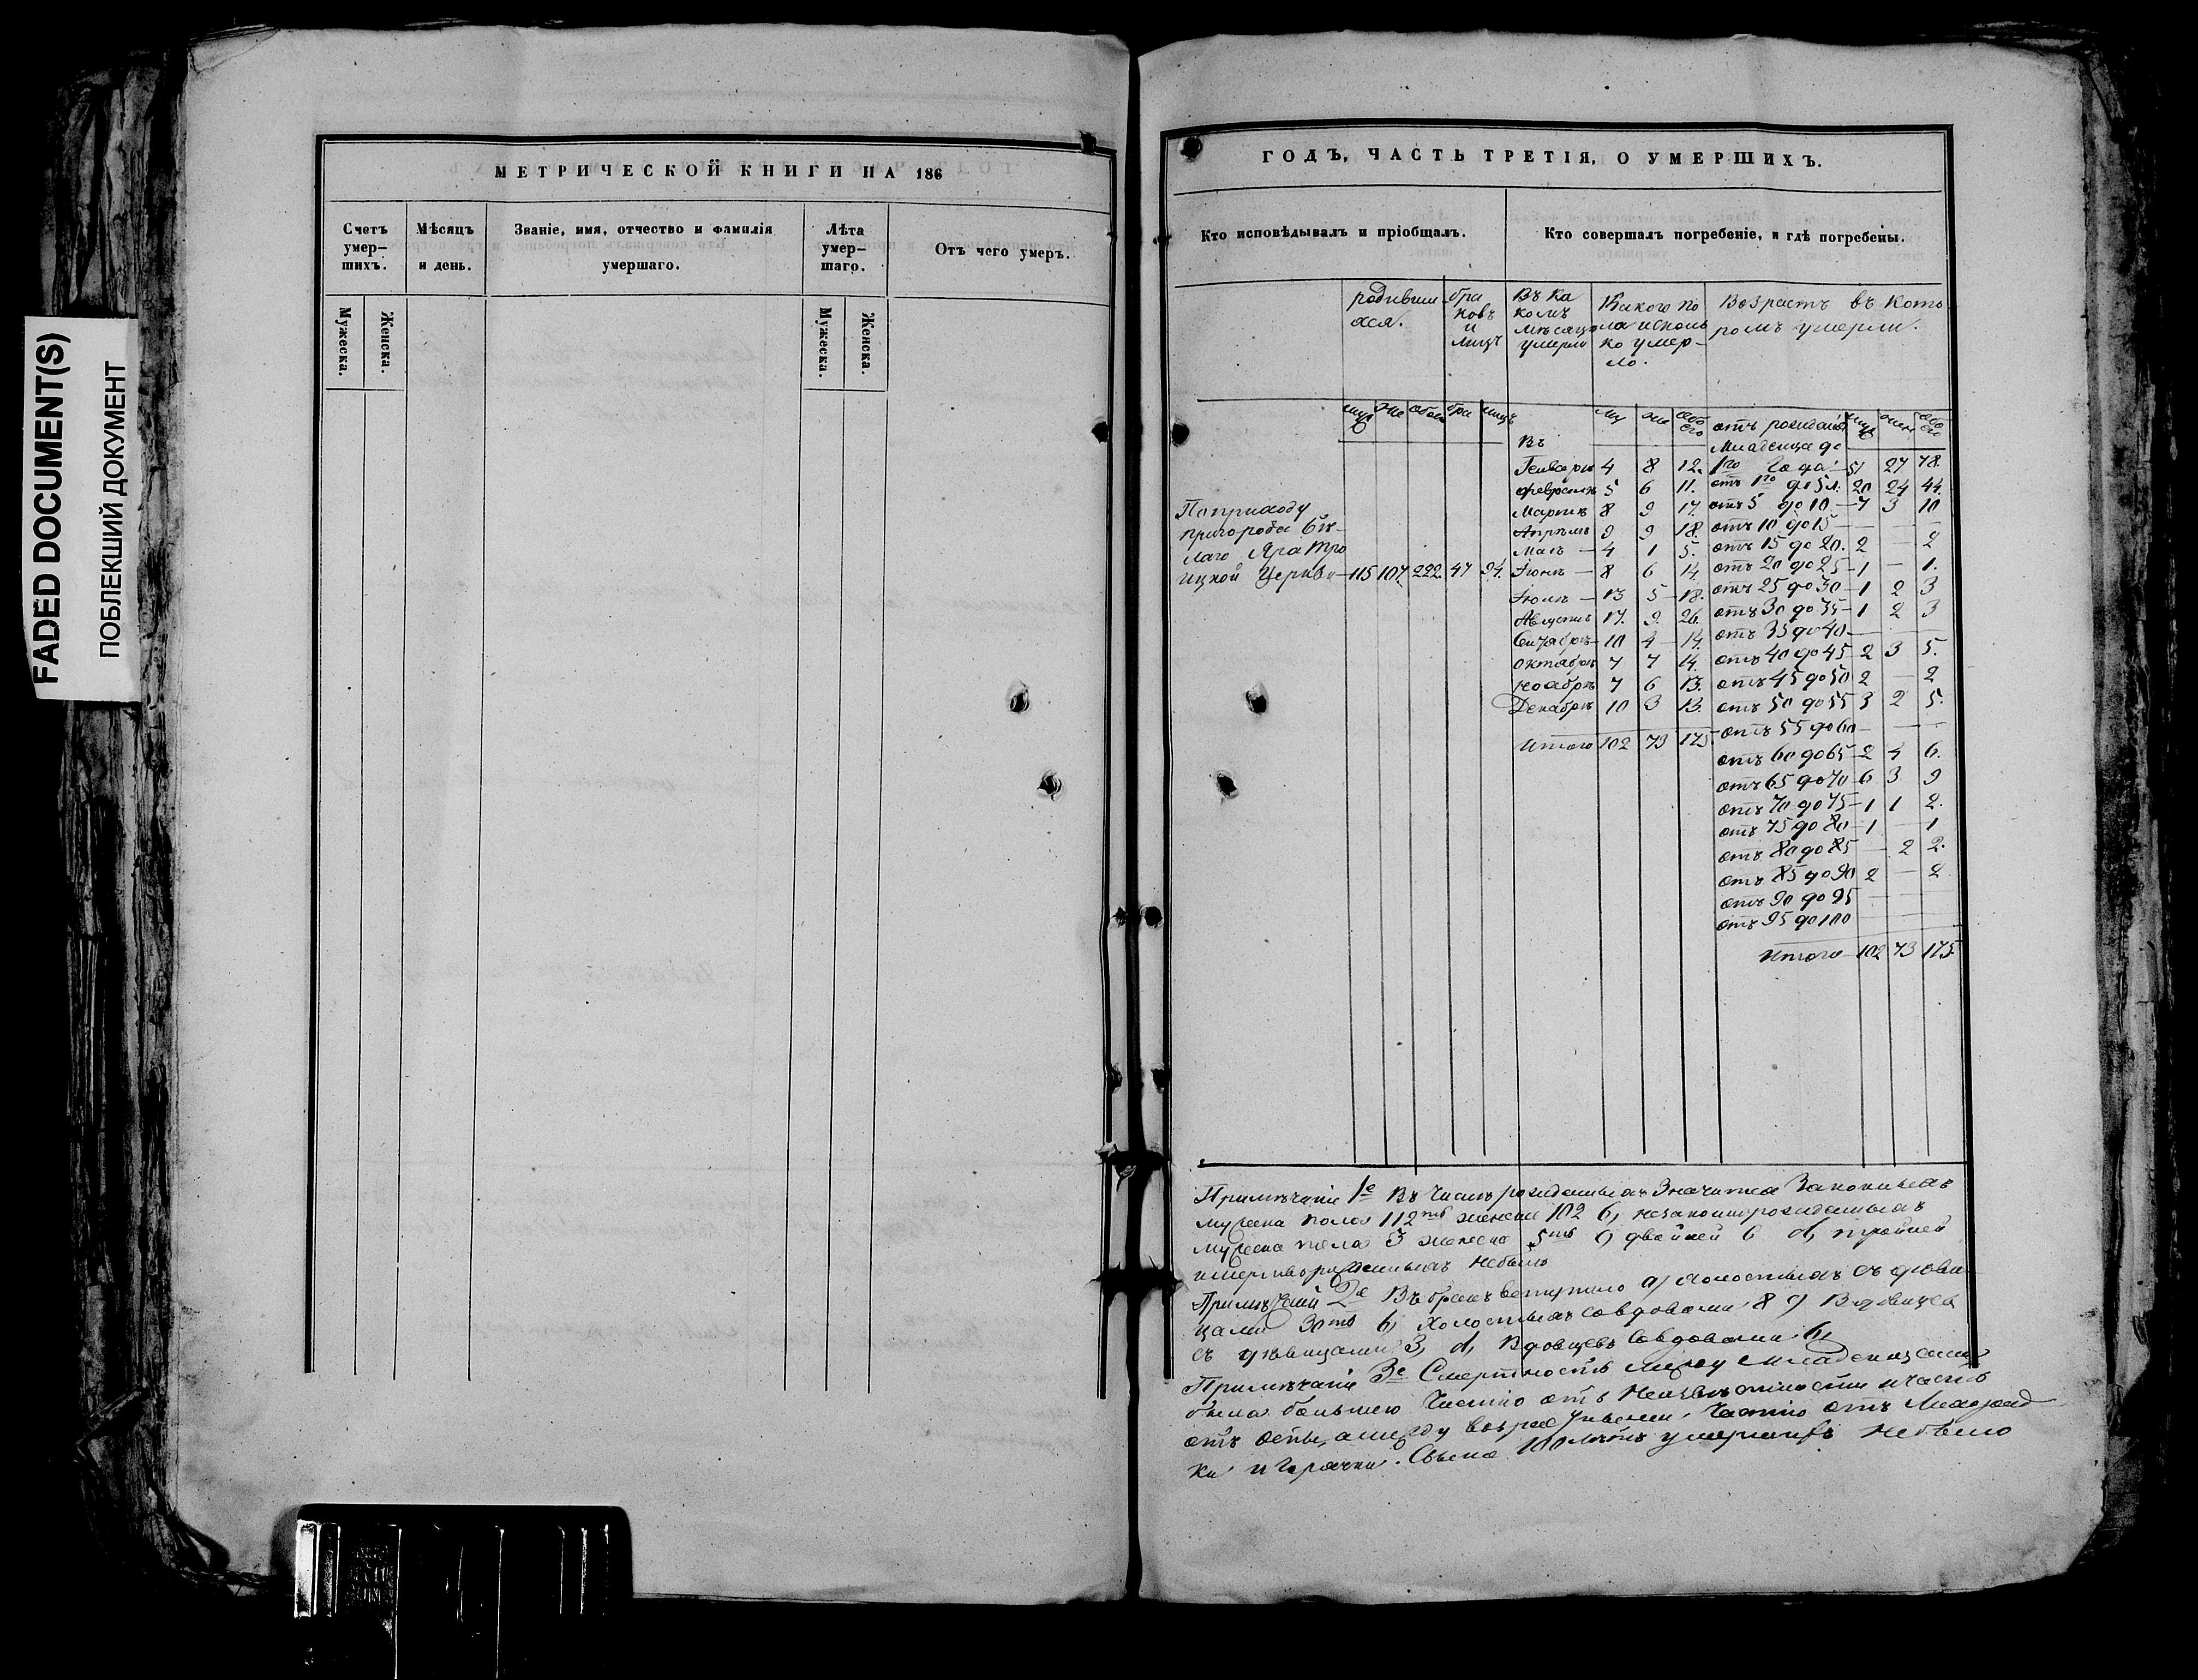 FADED DOCUMENT(S)
ПОБЛЕКШИЙ ДОКУМЕНТ
МЕТРИЧЕСКОЙ КНИГИ НА 186
Счетъ умер-шихъ.
Мужеска.
Женска.
Мѣсяцъ и день.
Званіе, имя, отчество и фамилія умершаго.
Лѣта умер-шаго.
Мужеска.
Женска.
Отъ чего умеръ.
ГОДЪ, ЧАСТЬ ТРЕТІЯ, О УМЕРШИХЪ.
Кто исповѣдывалъ и пріобщалъ.
Кто совершалъ погребеніе, и гдѣ погребены.
родивши-хся.
бра ковъ и лицъ
Въ ка комъ мѣсяцѣ умерли
Какого по ла и сколь ко умер-ло.
Возрастъ въ кото-ромъ умерли.
муж же обоег бра лицъ
му же обо его
муж жен обо его
По приходу
пригорода Бѣ-
лаго Яра Тро
ицкой Церкви — 115 107. 222. 47 94.
Въ
Генварѣ 4 8 12.
Февралѣ 5 6 11.
Мартѣ 8 9 17.
Апрѣлѣ 9 9 18.
Маѣ — 4 1 5.
Іюнѣ — 8 6 14.
Іюлѣ — 13 5 18.
Августѣ 17. 9. 26.
Сентябрѣ 10 4 14.
Октябрѣ 7 7 14.
Ноябрѣ 7 6 13.
Декабрѣ 10 3 13.
Итого 102 73 175.
отъ рожденія
Младенца до
1го года — 51 27 78.
отъ 1го до 5 л. 20 24 44.
отъ 5 до 10 — 7 3 10
отъ 10 до 15 — — —
отъ 15 до 20. 2 — 2
отъ 20 до 25 — 1 — 1.
отъ 25 до 30 — 1 2 3
отъ 30 до 35 — 1 2 3
отъ 35 до 40 — — —
отъ 40 до 45 — 2 3 5.
отъ 45 до 50 2 — 2
отъ 50 до 55 3 2 5.
отъ 55 до 60 — — —
отъ 60 до 65 — 2 4 6.
отъ 65 до 70 — 6 3 9
отъ 70 до 75 — 1 1 2.
отъ 75 до 80 — 1 — 1
отъ 80 до 85 — 2 2.
отъ 85 до 90 2 — 2
отъ 90 до 95 — — —
отъ 95 до 100 — — —
Итого — 102 73 175.
Примѣчаніе 1е Въ числѣ рожденныхъ значится Законныхъ
мужеска пола 112ть женска 102 б, незаконнорожденныхъ
мужеска пола 3 женска 5ть с, двойней 6 d, тройней
и мертворожденныхъ небыло
Примѣчаніе 2е Въ бракъ вступило а, холостыхъ съ дѣви-
цами 30ть б, Холостыхъ со вдовами 8 с, Вдовцевъ
съ дѣвицами 3, d, Вдовцевъ со вдовами 6,
Примѣчаніе 3е Смертность между младенцами
была большею частію отъ неизвѣстности и часть
отъ оспы, а между возрастными частію отъ Лихорад
ки и горячки. Свыше 100 лѣтъ умершихъ небыло